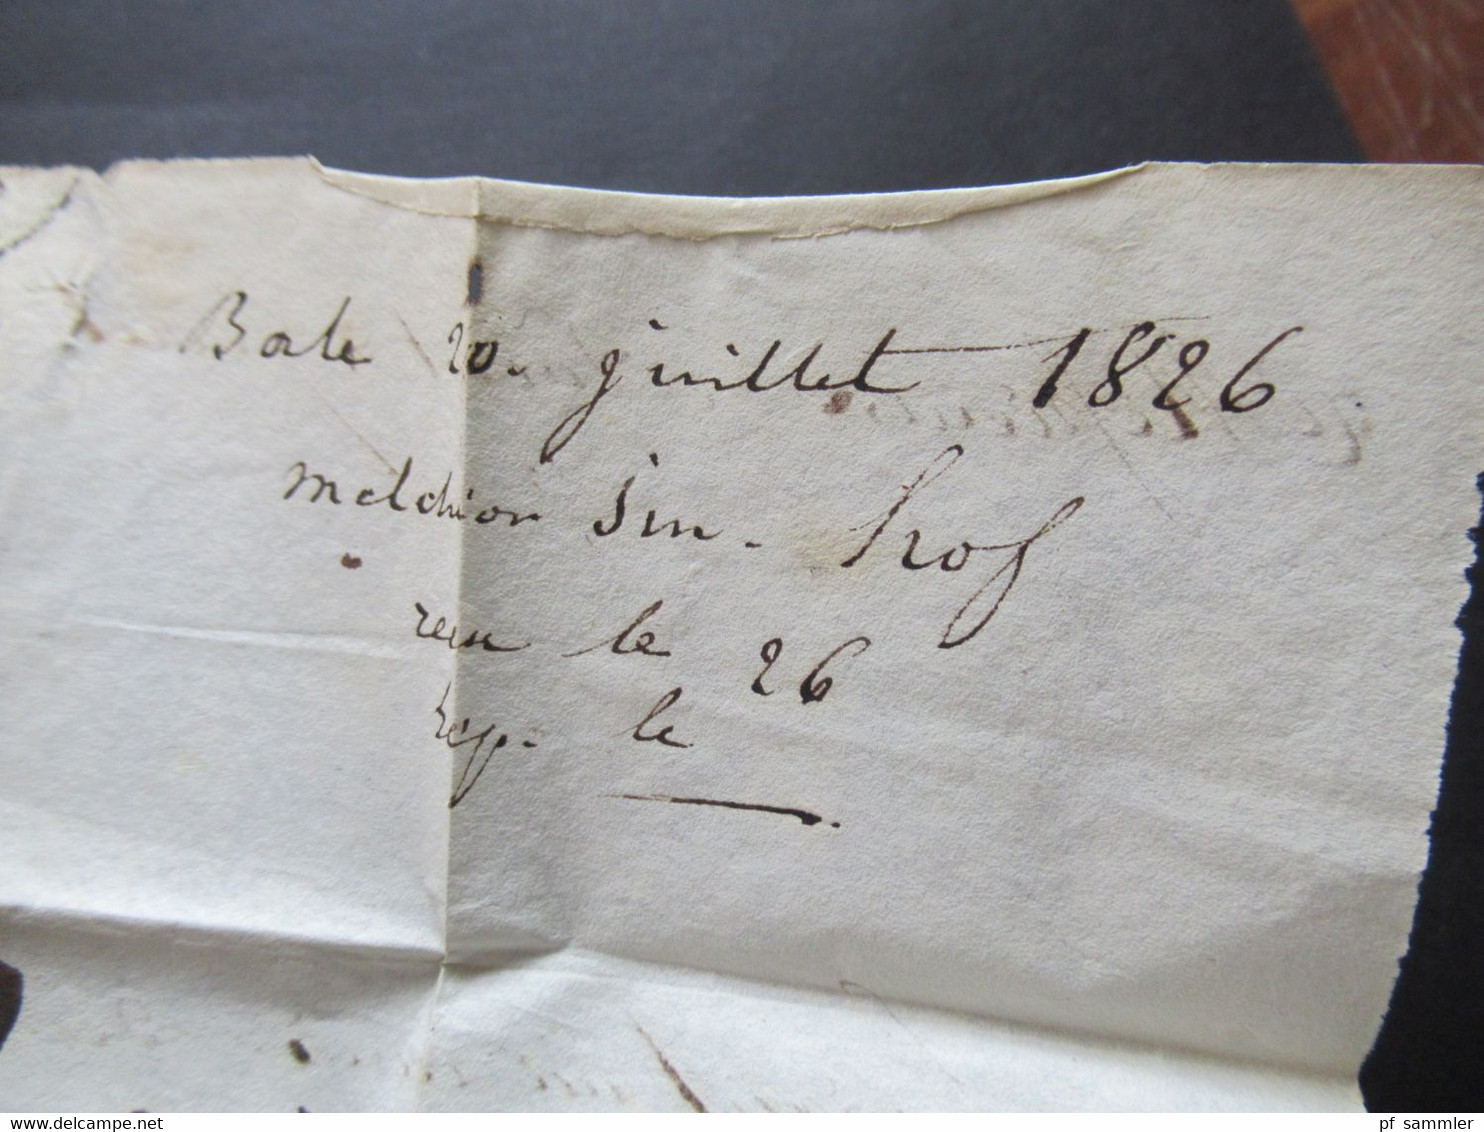 Bale 20. juillet 1826
Melchior im. hof
recu le 26
Rep. le
www.delcampe.net
pf_sammler